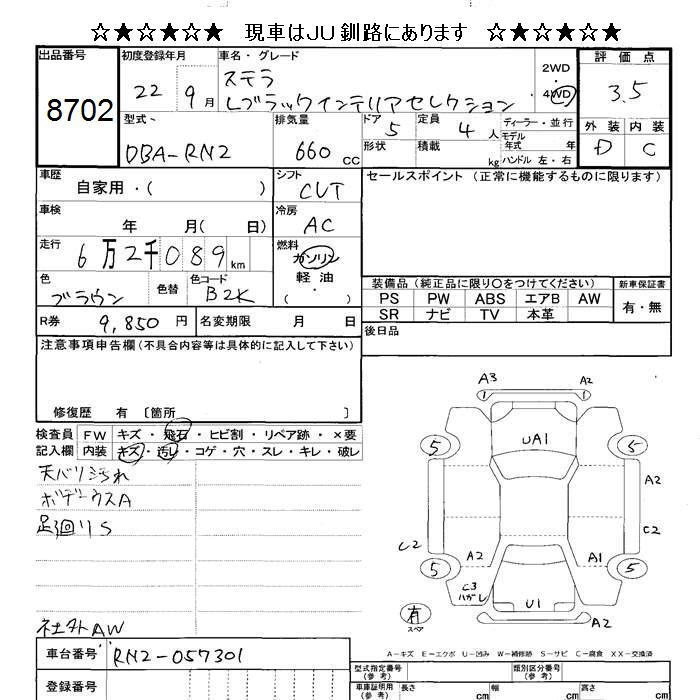 ☆★☆★☆★ 現車はJU釧路にあります ☆★☆★☆★
出品番号 8702
初度登録年月 22年 9月
車名・グレード ステラ
Lブラックインテリアセレクション
2WD
4WD
評価点 3.5
外装 内装
D C
型式 DBA-RN2
排気量 660 cc
ドア 5 定員 4人
形状 積載 kg
ディーラー・並行
モデル年式 年
ハンドル 左・右
車歴 自家用・( )
シフト CVT
車検 年 月( 日)
冷房 AC
走行 6万2千089km
燃料 ガソリン
軽油
( ・ )
色 ブラウン 色替 色コード B2K
R券 9,850円 名変期限 月 日
セールスポイント(正常に機能するものに限ります)
装備品(純正品に限り〇をつけてください) 新車保証書
PS PW ABS エアB AW
SR ナビ TV 本革
有・無
後日品
注意事項申告欄(不具合内容等は具体的に記入して下さい)
修復歴 有 〔箇所 〕
検査員 FW キズ・飛石・ヒビ割・リペア跡・×要
記入欄 内装 キズ・汚レ・コゲ・穴・スレ・キレ・破レ
天バリ汚れ
ボデーウスA
足廻リS
社外AW
A3 A2
1 1
UA1
5 5
A2
C2 C2
A2 A1
5 5
C3
ハガレ
U1
A2
有
スペア
A-キズ E-エクボ U-凹み W-補修跡 S-サビ C-腐食 XX-交換済
車台番号 RN2-057301
登録番号
型式指定番号(参考) 類別区分番号(参考)
車庫証明用(参考) 長さ cm 幅 cm 高さ cm